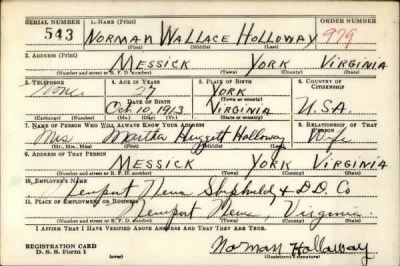 SERIAL NUMBER 1. NAME (Print) ORDER NUMBER (Print)
543 NORMAN WALLACE HOLLOWAY 979
(First) (Middle) (Last)
2. ADDRESS (Print)
MESSICK YORK VIRGINIA
(Number and street or R. F. D. number) (Town) (County) (State)
3. TELEPHONE 4. AGE IN YEARS 5. PLACE OF BIRTH 6. COUNTRY OF CITIZENSHIP
None 27 YORK
(Town or county)
DATE OF BIRTH
Oct. 10, 1913 VIRGINIA U.S.A.
(Exchange) (Number) (Mo.) (Day) (Yr.) (State or country)
7. NAME OF PERSON WHO WILL ALWAYS KNOW YOUR ADDRESS 8. RELATIONSHIP OF THAT PERSON
Mrs. Martha Holloway Wife
(Mr., Mrs., Miss) (First) (Middle) (Last)
9. ADDRESS OF THAT PERSON
MESSICK YORK VIRGINIA
(Number and street or R. F. D. number) (Town) (County) (State)
10. EMPLOYER'S NAME
Newport News Shipbuild & D.D. Co
11. PLACE OF EMPLOYMENT OR BUSINESS
Newport News, Virginia.
(Number and street or R. F. D. number) (Town) (County) (State)
I AFFIRM THAT I HAVE VERIFIED ABOVE ANSWERS AND THAT THEY ARE TRUE.
REGISTRATION CARD
D. S. S. Form 1 (over) Norman Holloway
(Registrant's signature)